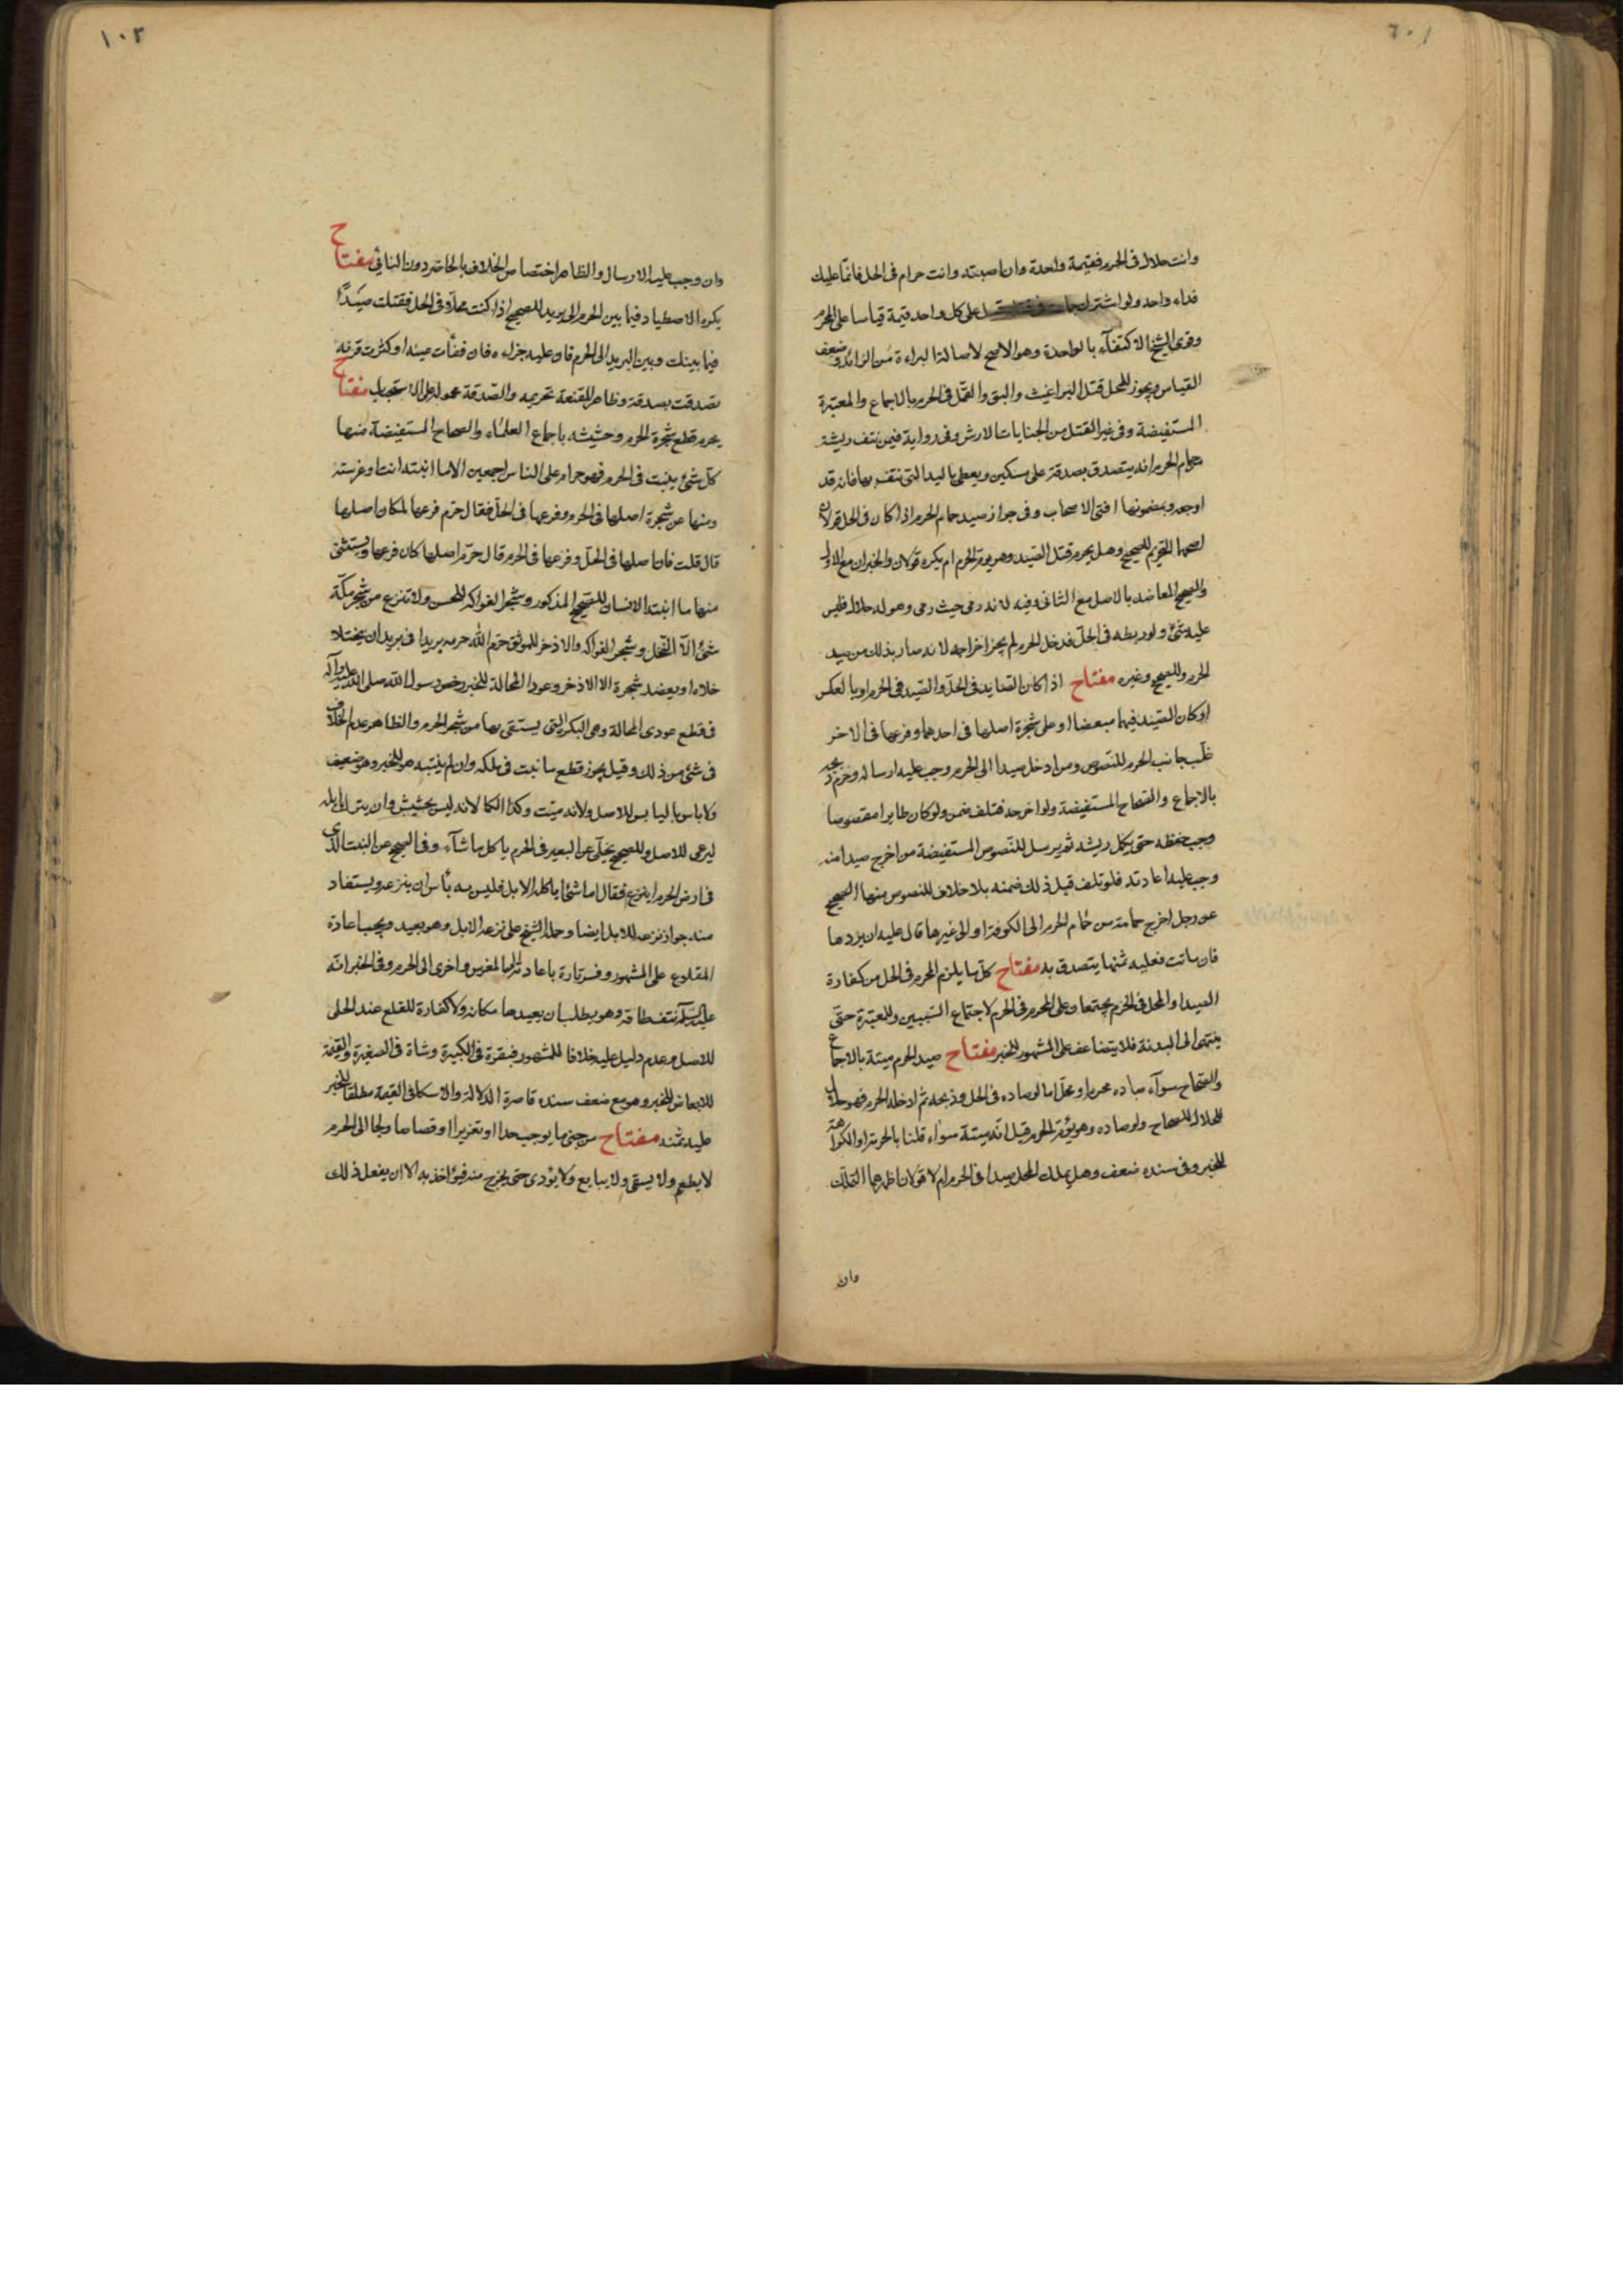 وانت حلال فى الحرم فقيمة واحدة وان اصبته وانت حرام فى الحل فانما عليك
فداء واحد ولو اشترك على كل واحد قيمة قياسا على المحرم
وقوى الشيخ الاكتفآء بالواحدة وهو الاصح لاصالة البراءة من الزائد وضعف
القياس ويجوز للمحل قتل البراغيث والبق والقمّل فى الحرم بالاجماع والمعتبرة
المستفيضة وفى غير القتل من الجنايات الارش وفى رواية فيمن نتف ريشة
حمام الحرم انه يتصدق بصدقة على مسكين ويعطى باليد التى نتفه بها فانه قد
اوجعه وبمضمونها افتى الاصحاب وفى جواز صيد حمام الحرم اذا كان فى الحل قولان
اصحهما التحريم للصحيح وهل يحرم قتل الصّيد وهو يؤم الحرم ام يكره قولان والخبران مع الاول
والصحيح المعاضد بالاصل مع الثانى وفيه لانه رمى حيث رمى وهو له حلال فليس
عليه شئ ولو ربطه فى الحلّ فدخل الحرم لم يجز اخراجه لانه صار بذلك من صيد
الحرم وللصحيح وغيره مفتاح اذا كان الصّايد فى الحلّ والصّيد فى الحرم او بالعكس
او كان الصّيد فيهما مبعضا او على شجرة اصلها فى احدهما وفرعها فى الاخر
غلّب جانب الحرم للنصوص ومن ادخل صيدا الى الحرم وجب عليه ارساله وحرم ذبحه
بالاجماع والصّحاح المستفيضة ولو اخرجه فتلف ضمن ولو كان طايرا مقصوصا
وجب حفظه حتى يكمل ريشه ثم يرسل للنّصوص المستفيضة من اخرج صيدا منه
وجب عليه اعادته فلو تلف قبل ذلك ضمنه بلا خلاف للنصوص منها الصحيح
عن رجل اخرج حمامة من حمام الحرم الى الكوفة او الى غيرها قال عليه ان يردها
فان ماتت فعليه ثمنها يتصدق به مفتاح كلّ ما يلزم المحرم فى الحل من كفارة
الصيد او المحل فى الحرم يجتمعا وعلى المحرم فى الحرم لاجتماع السّببين وللمعتبرة حتّى
ينتهى الى البدنة فلا يتضاعف على المشهور للخبر مفتاح صيد الحرم ميتة بالاجماع
والصّحاح سوآء صاده محرم او محلّ اما لو صاده فى الحل وذبحه ثم ادخله الحرم فهو حلال
للحلال للصحاح ولو صاده وهو يؤم الحرم قيل انّه ميتة سواء قلنا بالحرمة او الكراهة
للخبر وفى سنده ضعف وهل يملك المحل صيدا فى الحرم ام لا قولان اظهرهما التملك
وان
١٠٢
وان وجب عليه الارسال والظاهر اختصاص الخلاف بالحاضر دون النائى مفتاح
يكره الاصطياد فيما بين الحرم الى بريد للصحيح اذا كنت محلّا فى الحل فقتلت صيدًا
فيما بينك وبين البريد الى الحرم فان عليه جزاءه فان فقأت عينه او كسرت قرنه
تصدقت بصدقة وظاهر المقنعة تحريمه والصّدقة محمولة على الاستحباب مفتاح
يحرم قطع شجرة الحرم وحشيشه باجماع العلمآء والصحاح المستفيضة منها
كلّ شئ ينبت فى الحرم فهو حرام على الناس اجمعين الا ما انبته انت او غرسته
ومنها عن شجرة اصلها فى الحرم وفرعها فى الحلّ فقال حرّم فرعها لمكان اصلها
قال قلت فان اصلها فى الحلّ وفرعها فى الحرم قال حرّم اصلها لمكان فرعها ويستثنى
منها ما انبته الانسان للصّحيح المذكور وشجر الفواكه للحسن ولا تنزع من شجر مكّة
شئ الّا النّخل وشجر الفواكه والاذخر للموثق حرّم اللّه حرمه بريدا فى بريد ان يختلا
خلاه او يعضد شجرة الا الاذخر وعودا المحالة للخبر رخص رسول اللّه صلى اللّه عليه وآله
فى قطع عودى المحالة وهى البكرة التى يستقى بها من شجر الحرم والظاهر عدم الخلاف
فى شئ من ذلك وقيل يجوز قطع ما نبت فى ملكه وان لم ينبته هو للخبر وهو ضعيف
ولا باس باليابس للاصل ولانه ميّت وكذا الكما لانه ليس بحشيش وان يترك ابله
ليرعى للاصل وللصحيح يخلّى عن البعير فى الحرم ياكل ما شآء وفى الصحيح عن النبت الذى
فى ارض الحرم اينزع فقال اما شئ ياكله الابل فليس به بأس ان ينزعه ويستفاد
منه جواز نزعه للابل ايضا وحمله الشيخ على نزعه الابل وهو بعيد ويجب اعادة
المقلوع على المشهور وفسر تارة باعادتها الى المغرس واخرى الى الحرم وفى الخبر انّه
عليه السّلم نتف طاقة وهو يطلب ان يعيدها مكانه ولا كفارة للقلع عند الحلى
للاصل وعدم دليل عليه خلافا للمشهور فبقرة فى الكبيرة وشاة فى الصغيرة والقيمة
للابعاض للخبر وهو مع ضعف سنده قاصرة الدّلالة والاسكافى القيمة مطلقا للخبر
عليه ثمنه مفتاح من جنى ما يوجب حدا او تعزيرا او قصاصا ولجا الى الحرم
لا يطعم ولا يسقى ولا يبايع ولا يؤدى حتى يخرج منه فيؤاخذ به الا ان يفعل ذلك